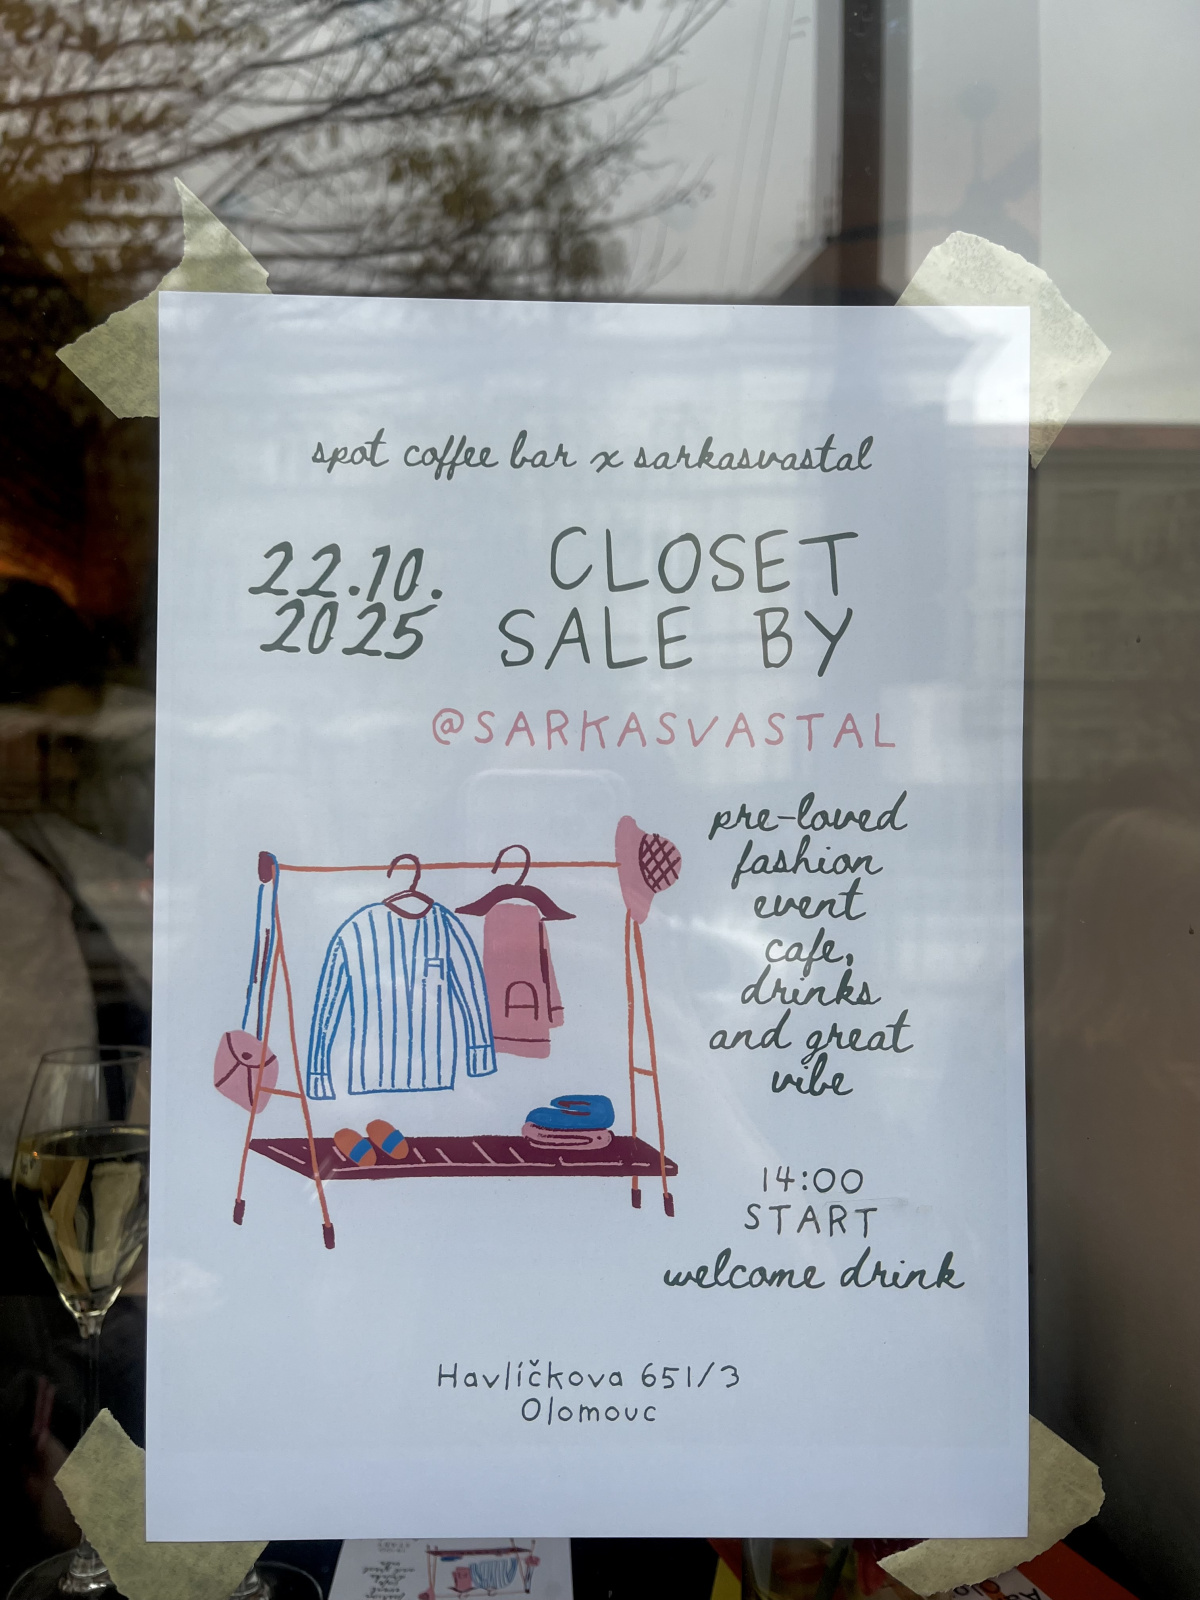 spot coffee bar x sarkasvastal
22.10.
2025
CLOSET
SALE BY
@SARKASVASTAL
pre-loved
fashion
event
cafe,
drinks
and great
vibe
14:00
START
welcome drink
Havlíčkova 651/3
Olomouc